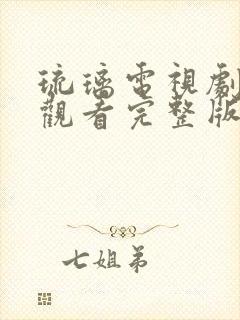 琉璃電視劇
觀看完整版
七姐弟